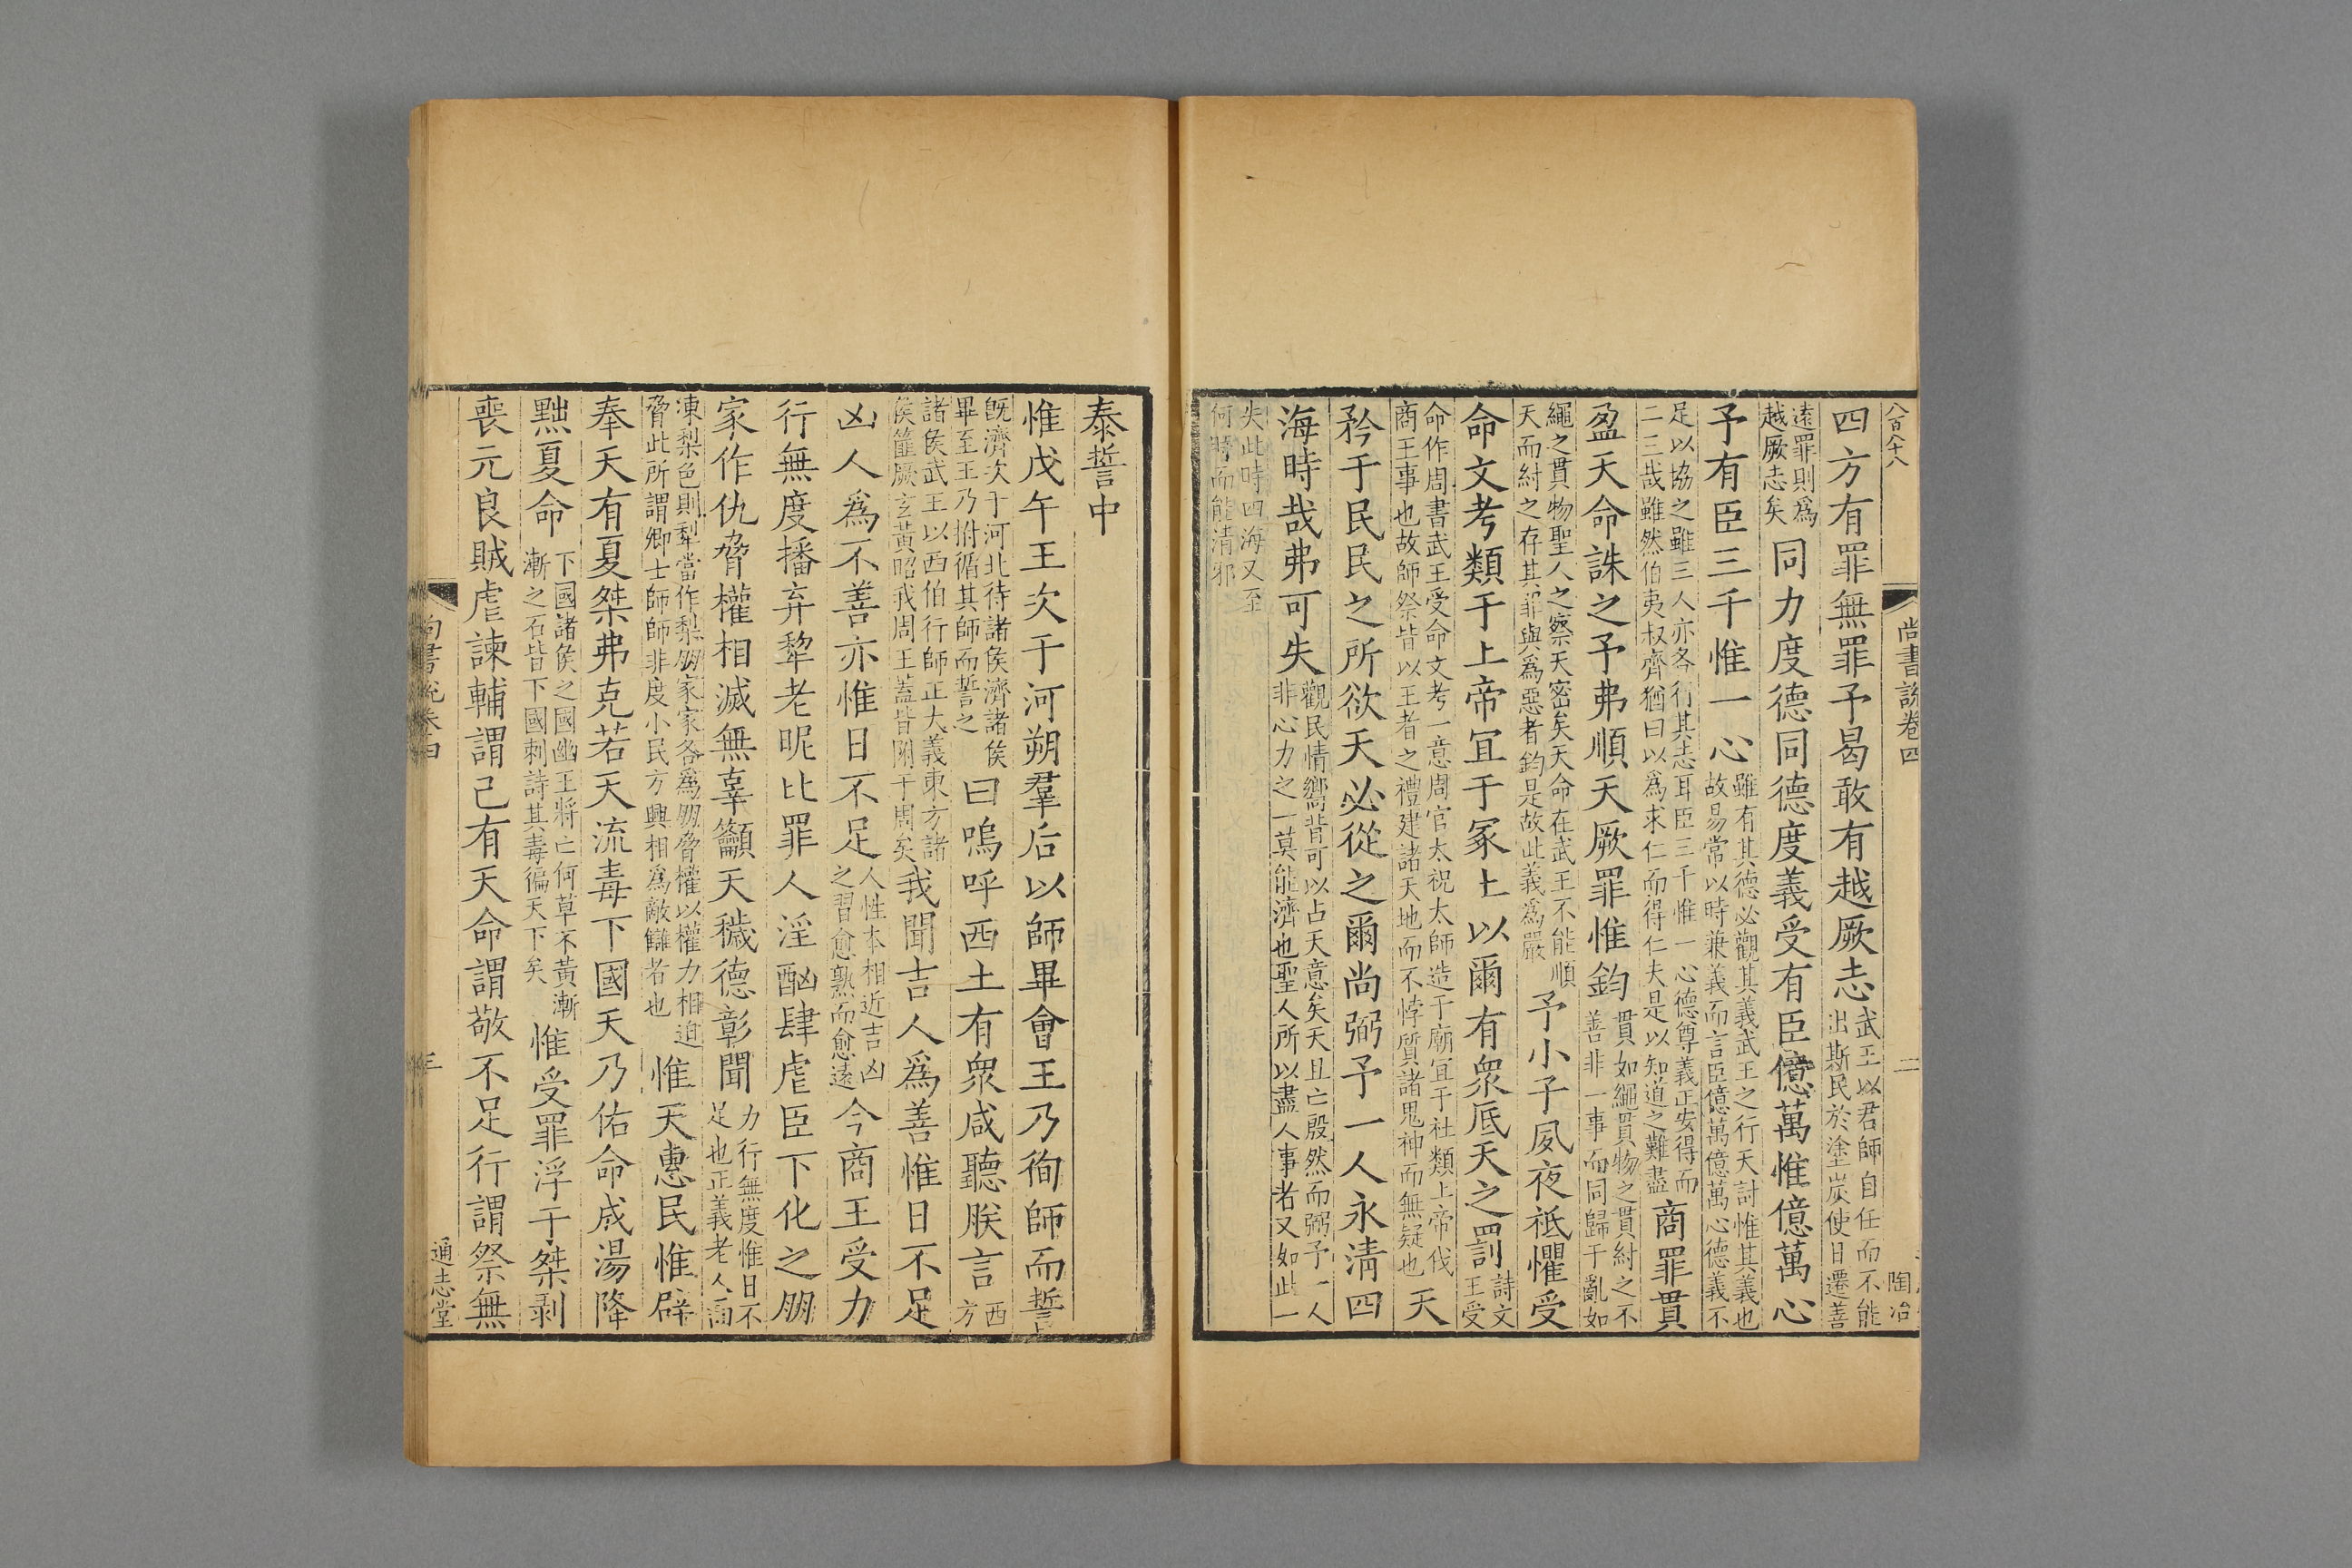 八百八十八
尚書說卷四
二
陶冶
四方有罪無罪予曷敢有越厥志武王以君師自任而不能出斯民於塗炭使日遷善
遠罪則爲越厥志矣同力度德同德度義受有臣億萬惟億萬心
予有臣三千惟一心雖有其德必觀其義武王之行天討惟其義也故易常以時兼義而言臣億萬億萬心德義不
足以協之雖三人亦各行其志耳臣三千惟一心德尊義正安得而二三哉雖然伯夷叔齊猶曰以爲求仁而得仁夫是以知道之難盡商罪貫
盈天命誅之予弗順天厥罪惟鈞貫如繩貫物之貫紂之不善非一事而同歸于亂如
繩之貫物聖人之察天密矣天命在武王不能順天而紂之存其罪與爲惡者鈞是故此義爲嚴予小子夙夜祗懼受
命文考類于上帝宜于冢土以爾有衆厎天之罰詩文王受
命作周書武王受命文考一意周官太祝太師造于廟宜于社類上帝伐商王事也故師祭皆以王者之禮建諸天地而不悖質諸鬼神而無疑也天
矜于民民之所欲天必從之爾尚弼予一人永淸四
海時哉弗可失觀民情嚮背可以占天意矣天且亡殷然而弼予一人非心力之一莫能濟也聖人所以盡人事者又如此一
失此時四海又至何時而能清邪
泰誓中
惟戊午王次于河朔羣后以師畢會王乃徇師而誓上
旣濟次于河北待諸侯濟諸侯畢至王乃拊循其師而誓之曰嗚呼西土有衆咸聽朕言西方
諸侯武王以西伯行師正大義東方諸侯篚厥玄黃昭我周王蓋皆附于周矣我聞吉人爲善惟日不足
凶人爲不善亦惟日不足人性本相近吉凶之習愈熟而愈遠今商王受力
行無度播弃犂老昵比罪人淫酗肆虐臣下化之朋
家作仇脅權相滅無辜籲天穢德彰聞力行無度惟日不足也正義老人面
凍梨色則犂當作梨朋家家各爲朋脅權以權力相迫脅此所謂卿士師師非度小民方興相爲敵讎者也惟天惠民惟辟
奉天有夏桀弗克若天流毒下國天乃佑命成湯降
黜夏命下國諸侯之國幽王將亡何草不黃漸漸之石皆下國刺詩其毒徧天下矣惟受罪浮于桀剥
喪元良賊虐諫輔謂己有天命謂敬不足行謂祭無
尚書說卷四
三
通志堂